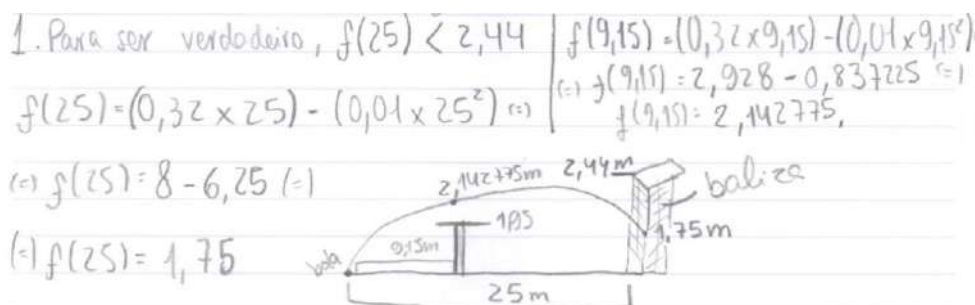 1. Para ser verdadeiro, f(25) < 2,44
f(25)=(0,32 x 25) - (0,01 x 25²) (=)
(=) f(25)= 8 - 6,25 (=)
(=) f(25)= 1,75
f(9,15) = (0,32x9,15) - (0,01x9,15²)
(=) f(9,15) = 2,928 - 0,837225 (=)
f(9,15)= 2,142775,
2,44m
baliza
2,142775m
1,85
1,75m
9,15m
bola
25m